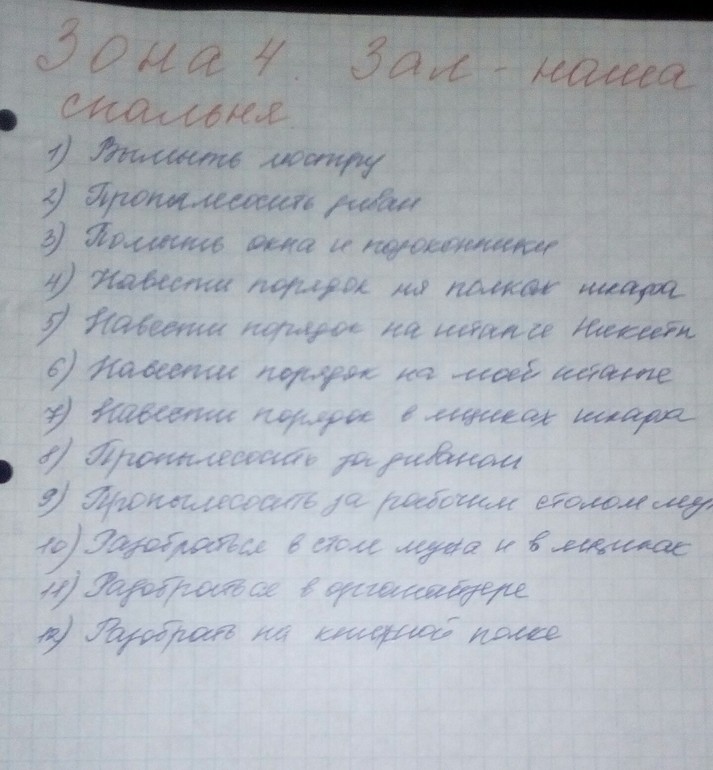 Зона 4. Зал - наша
спальня
1) Вымыть люстру
2) Пропылесосить диван
3) Помыть окна и подоконники
4) Навести порядок на полках шкафа
5) Навести порядок на штанге Никиты
6) Навести порядок на моей штанге
7) Навести порядок в ящиках шкафа
8) Пропылесосить за диваном
9) Пропылесосить за рабочим столом
10) Разобраться в столе мужа и в ящиках
11) Разобраться в органайзере
12) Разобрать на книжной полке